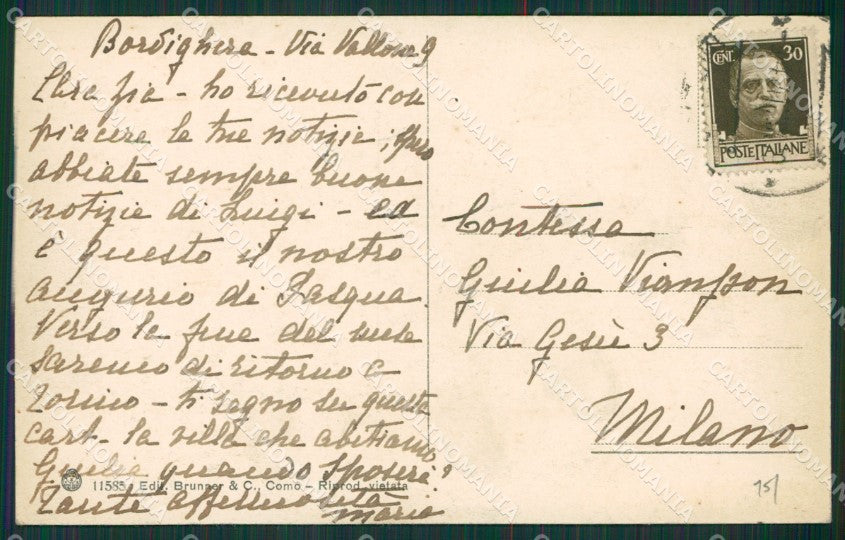 Bordighera - Via Vallone 9
Cara zia - ho ricevuto con
piacere le tue notizie; spero
abbiate sempre buone
notizie di Luigi - ed
è questo il nostro
augurio di Pasqua.
Verso la fine del mese
saremo di ritorno a
Torino - ti segno su questa
cart. la villa che abitiamo
Giulia quando sposerà?
Tante affettuosità
Maria
11585 - Edit. Brunner & C., Como - Riprod. vietata
CENT. 30
POSTE ITALIANE
Contessa
Giulia Vianson
Via Gesù 3
Milano
15/
CARTOLINOMANIA